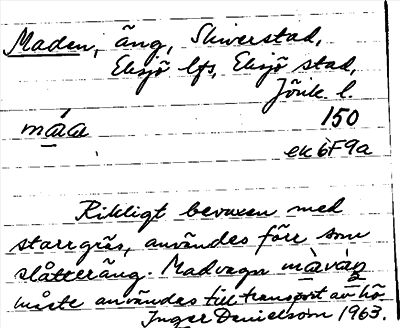 Maden, äng, Skiverstad,
Eksjö lfs, Eksjö stad,
Jönk. l.
150
ek 6F9a
Rikligt bevuxen med
starrgräs, användes förr som
slåtteräng. Madvagn
måste användas till transport av hö.
Inger Danielsson 1963.